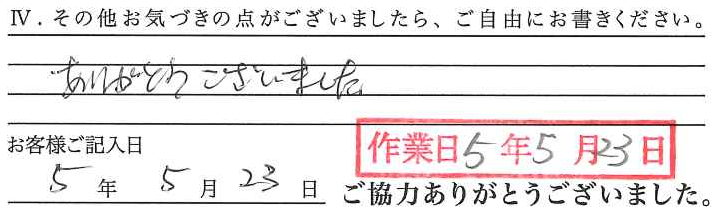 Ⅳ．その他お気づきの点がございましたら、ご自由にお書きください。
ありがとうございました
お客様ご記入日
作業日5年5月23日
5年5月23日
ご協力ありがとうございました。